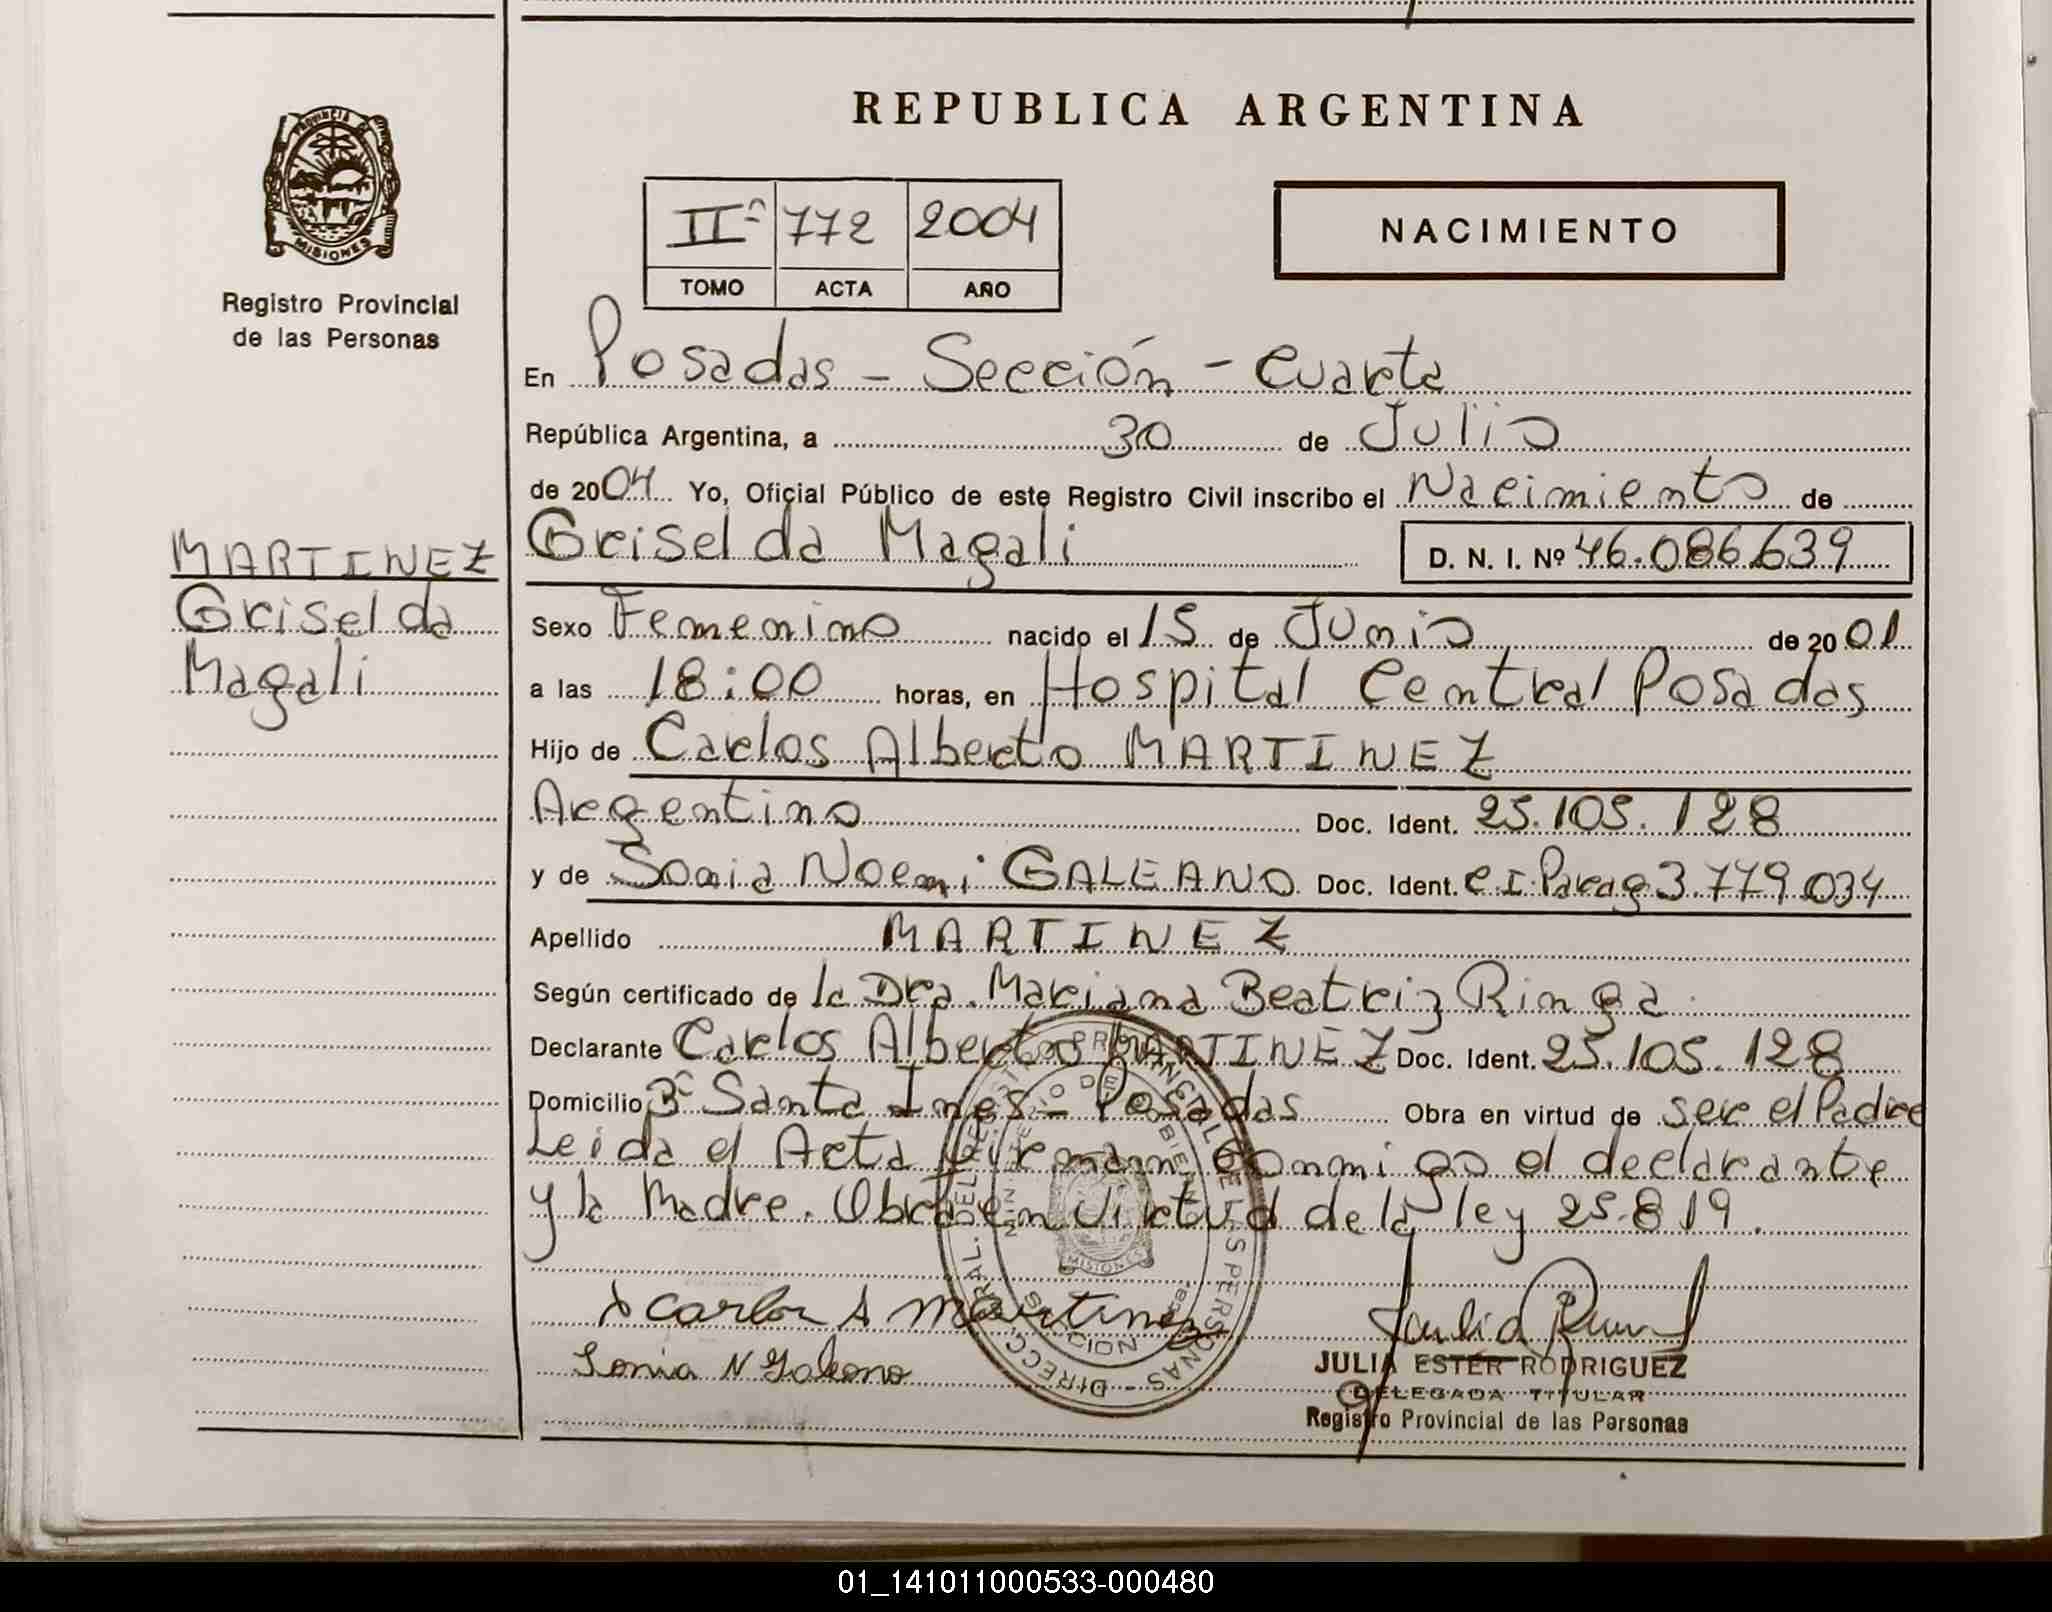 REPUBLICA ARGENTINA
PROVINCIA DE
MISIONES
Registro Provincial
de las Personas
IIº 772 2004
TOMO ACTA AÑO
NACIMIENTO
En Posadas - Sección - Cuarta
República Argentina, a 30 de Julio
de 2004 Yo, Oficial Público de este Registro Civil inscribo el Nacimiento de
Griselda Magali D. N. I. Nº 46.086.639
MARTINEZ
Griselda
Magali
Sexo Femenino nacido el 15 de Junio de 2001
a las 18:00 horas, en Hospital Central Posadas
Hijo de Carlos Alberto MARTINEZ
Argentino Doc. Ident. 25.105.128
y de Sonia Noemi GALEANO Doc. Ident. C.I. Parag 3.779.034
Apellido MARTINEZ
Según certificado de la Dra. Mariana Beatriz Ringa
Declarante Carlos Alberto MARTINEZ Doc. Ident. 25.105.128
Domicilio Bº Santa Ines - Posadas Obra en virtud de ser el Padre
Leida el Acta firman conmigo el declarante
y la Madre. Obra en virtud de la ley 25.819.
Carlos A Martinez
Sonia N Galeano
JULIA ESTER RODRIGUEZ
DELEGADA TITULAR
Registro Provincial de las Personas
01_141011000533-000480